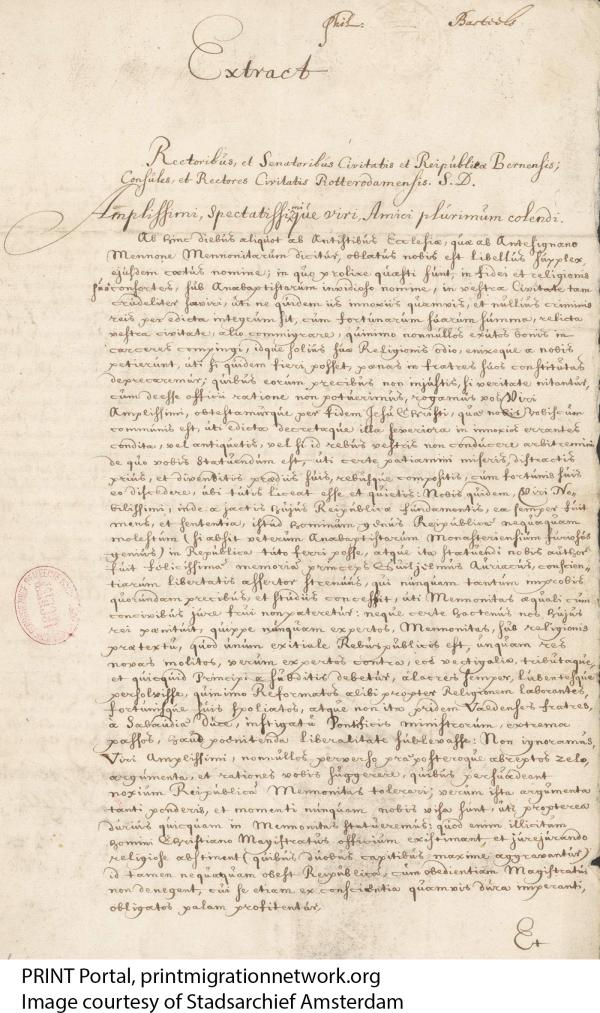 Phil: Bartels
Extract
Rectoribus, et Senatoribus Civitatis et Reipublicæ Bernensis;
Consules, et Rectores Civitatis Rotterodamensis. S. D.
Amplissimi, Spectatissimique viri, Amici plurimum colendi.
Ab hinc diebus aliquot ab Antistibus Ecclesiæ, quæ ab Antesignano
Mennone Mennonitarum dicitur, oblatus nobis est libellus supplex,
ejusdem cœtus nomine; in quo prolixe questi sunt, in fidei et religionis
suæ consortes, sub Anabaptistarum invidioso nomine, in vestra Civitate tam
crudeliter sæviri, uti ne quidem iis innoxiis quamvis, et nullius criminis
reis per edicta integrum sit, cum fortunarum suarum summa, relicta
vestra civitate, alio commigrare, quinimo nonnullos exutos bonis in
carceres compingi, idque solius suæ Religionis odio, enixeque a nobis
petierunt, uti si quidem fieri posset, pœnas in fratres suos constitutas
deprecaremur; quibus eorum precibus non injustis, si veritate nitantur,
cum deesse officii ratione non potuerimus, rogamus vos Viri
Amplissimi, obtestamurque per fidem Jesu Christi, quæ nobis vobiscum
communis est, uti edicta decretaque illa severiora in innoxios errantes
condita, vel antiquetis, vel si id rebus vestris non conducere arbitremini
de quo vobis statuendum est, uti certe patiamini miseris, distractis
prius, et divenditis prædiis suis, rebusque compositis, cum fortunis suis
eo discedere, ubi tutis liceat esse et quietis: Nobis quidem, Viri No-
bilissimi, inde a jactis hujus Reipublicæ fundamentis, ea semper fuit
mens, et sententia, istud hominum genus Reipublicæ nequaquam
molestum (si absit veterum Anabaptistarum Monasteriensium furiosus
genius) in Republica tuto ferri posse, atque ita statuendi nobis author
fuit felicissimæ memoriæ princeps Guiljelmus Auriacus, conscien-
tiarum libertatis assertor strenuus, qui nunquam tantum improbis
quorundam precibus, et studiis concessit, uti Mennonitas æquali cum
concivibus jure frui non pateretur: neque certe hactenus nos hujus
rei pœnituit, quippe nunquam expertos, Mennonitas, sub religionis
prætextu, quod unum exitiale Rebuspublicis est, unquam res
novas molitos, verum expertos contra, eos vectigalia, tributaque,
et quicquid Principi a subditis debetur, alacres semper, lubentesque
persolvisse, quinimo Reformatos alibi propter Religionem laborantes,
fortunisque suis spoliatos, atque non ita pridem Valdenses fratres,
a Sabaudiæ Duce, instigatu Pontificis ministrorum, extrema
passos, haud pœnitenda liberalitate sublevasse: Non ignoramus,
Viri Amplissimi, nonnullos perverso præposteroque abreptos zelo,
argumenta, et rationes vobis suggerere, quibus persuadeant
noxium Reipublicæ Mennonitas tolerari; verum ista argumenta
tanti ponderis, et momenti nunquam nobis visa sunt, uti propterea
durius quicquam in Mennonitas statueremus: quod enim illicitum
homini Christiano Magistratus officium existimant, et jurejurando
religiose abstinent (quibus duobus capitibus maxime aggravantur)
id tamen nequaquam obest Reipublicæ, cum obedientiam Magistratui
non denegent, cui se etiam ex conscientia quamvis dura imperanti,
obligatos palam profitentur,
Et
PRINT Portal, printmigrationnetwork.org
Image courtesy of Stadsarchief Amsterdam